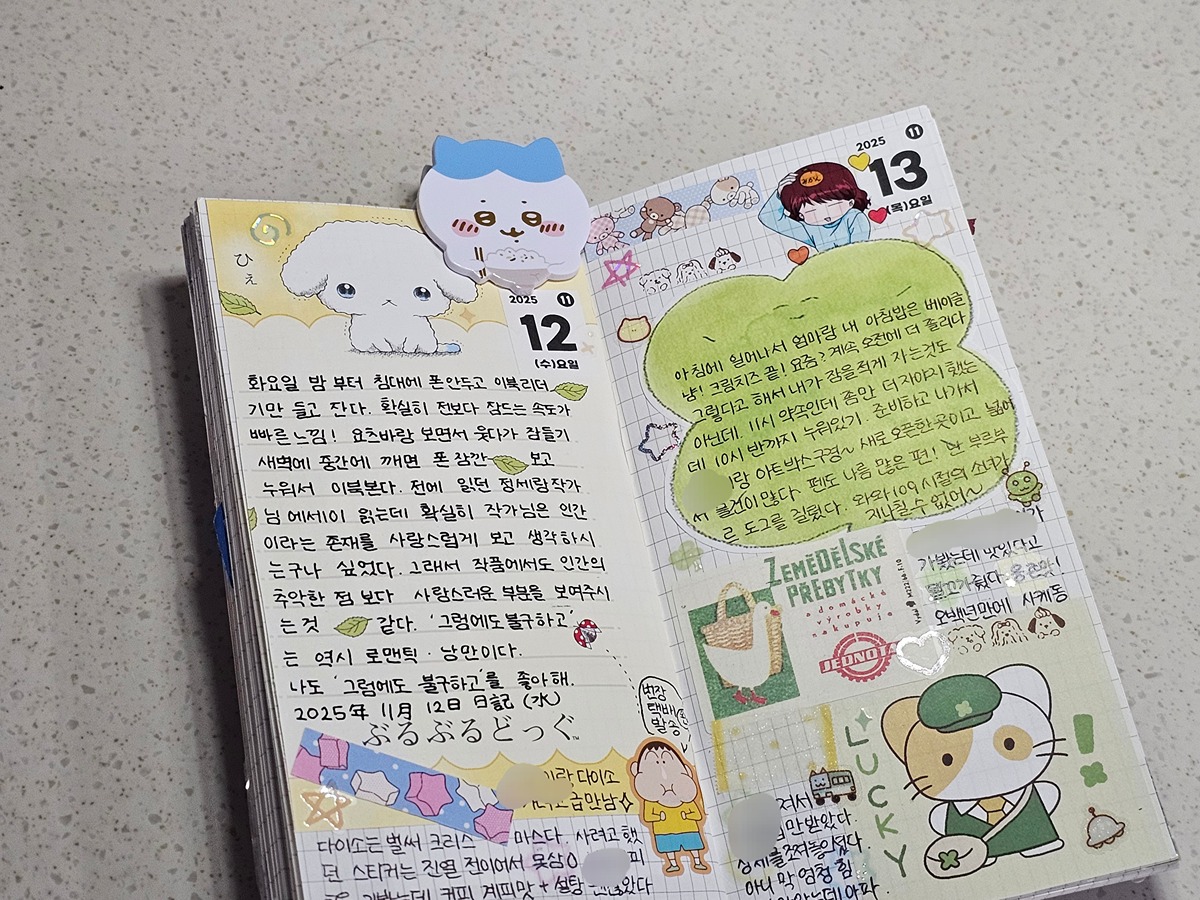 ひえ
2025 11
12
(수)요일
화요일 밤 부터 침대에 폰안두고 이북리더
기만 들고 잔다. 확실히 전보다 잠드는 속도가
빠른느낌! 요츠바랑 보면서 웃다가 잠들기
새벽에 중간에 깨면 폰 잠깐 보고
누워서 이북본다. 전에 읽던 정세랑작가
님 에세이 읽는데 확실히 작가님은 인간
이라는 존재를 사랑스럽게 보고 생각하시
는구나 싶었다. 그래서 작품에서도 인간의
추악한 점 보다 사랑스러운 부분을 보여주시
는것 같다. '그럼에도불구하고'
는 역시 로맨틱·낭만이다.
나도 '그럼에도 불구하고'를 좋아해.
2025年 11月 12日 日記 (水)
ぶるぶるどっぐ™
번장
택배
발송
이랑 다이소
급만남
다이소는 벌써 크리스 마스다. 사려고했
던 스티커는 진열 전이어서 못삼 피
커피 계피맛 + 설탕
2025 11
13
(목)요일
아침에 일어나서 엄마랑 내 아침밥은 베이글
냠! 크림치즈 끝! 요즘? 계속 오전에 더 졸리다
그렇다고 해서 내가 잠을적게 자는것도
아닌데. 11시 약속인데 좀만 더자야지 했는
데 10시 반까지 누워있기. 준비하고 나가서
이랑 아트박스구경~ 새로오픈한곳이고 넓어
서 물건이 많다. 펜도 나름 많은 편! 난 부르부
르 도그를 걸렀다. 와와109시절의 소녀가
지나칠 수 없어~
가
가봤는데 맛있다고
오백년만에 사케동
ZEMĚDĚLSKÉ
PŘEBYTKY
a domácké
výrobky
nakupuje
JEDNOTA
LUCKY
!
져서
만받았다.
아니 막 엄청 힘